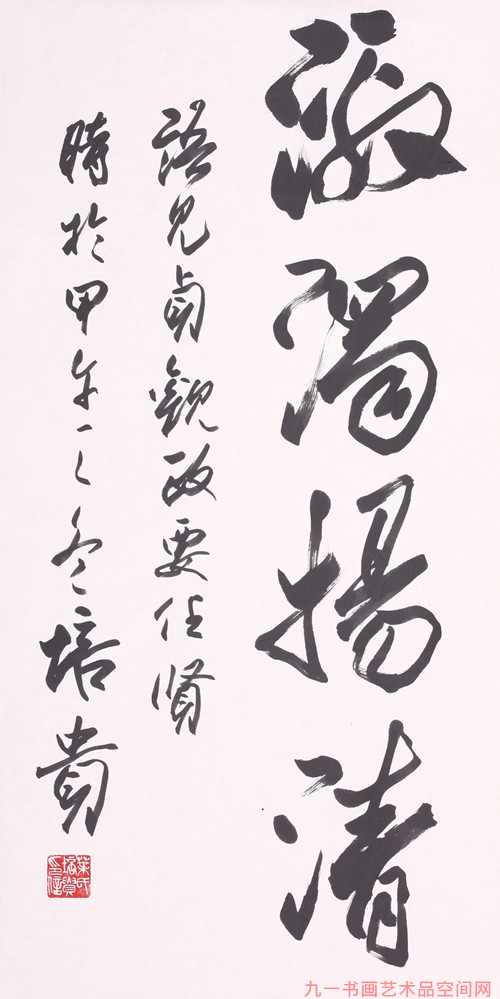 激濁揚清
語見貞觀政要任賢
時於甲午之冬培貴
葉氏培貴之信
九一书画艺术品空间网